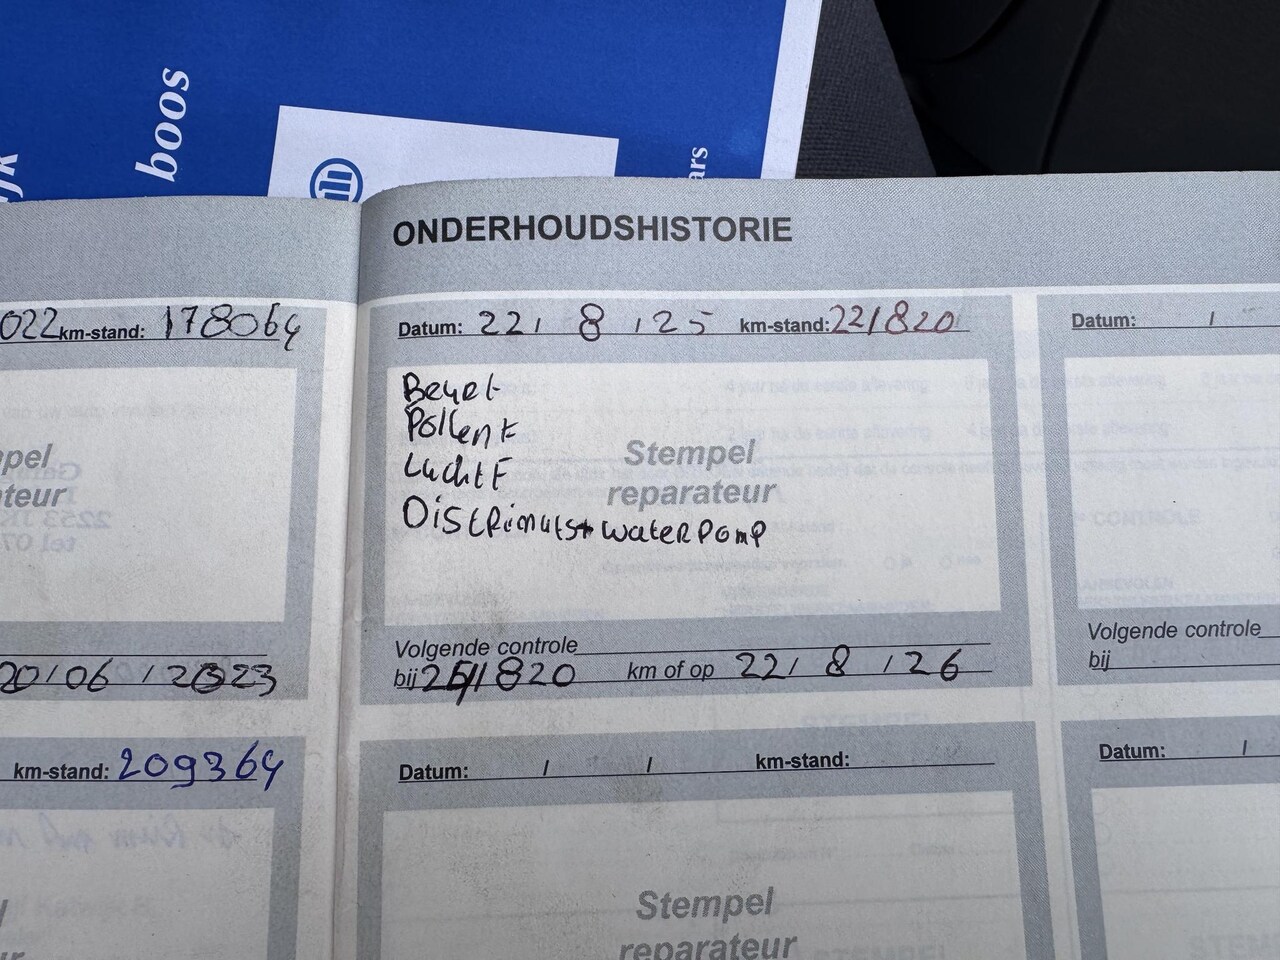 boos
ars
ONDERHOUDSHISTORIE
022 km-stand: 178064
Datum: 22 / 8 / 25 km-stand: 221820
Datum: /
Beurt
PollenF
LuchtF
Distriniuts + waterpomp
Stempel
reparateur
pel
teur
Volgende controle
bij 251820 km of op 22 / 8 / 26
20/06 / 2023
Volgende controle
bij
km-stand: 209364
Datum: / / km-stand:
Datum: /
Stempel
reparateur